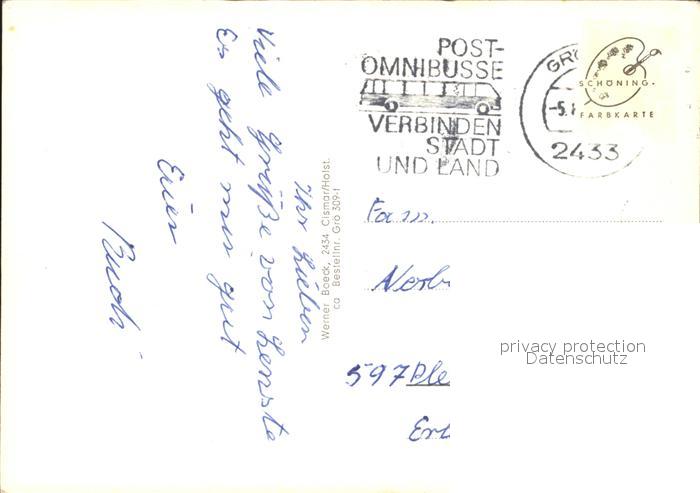 POST-
OMNIBUSSE
VERBINDEN
STADT
UND LAND
GRÖ
-5.
2433
SCHÖNING.
FARBKARTE
Ihr Lieben
Viele Grüße von Lenste
Es geht mir gut
Euer
Werner Boeck, 2434 Cismar/Holst.
ca Bestellnr. Grö 309-1
Fam.
Norb
597 Ple
privacy protection
Datenschutz